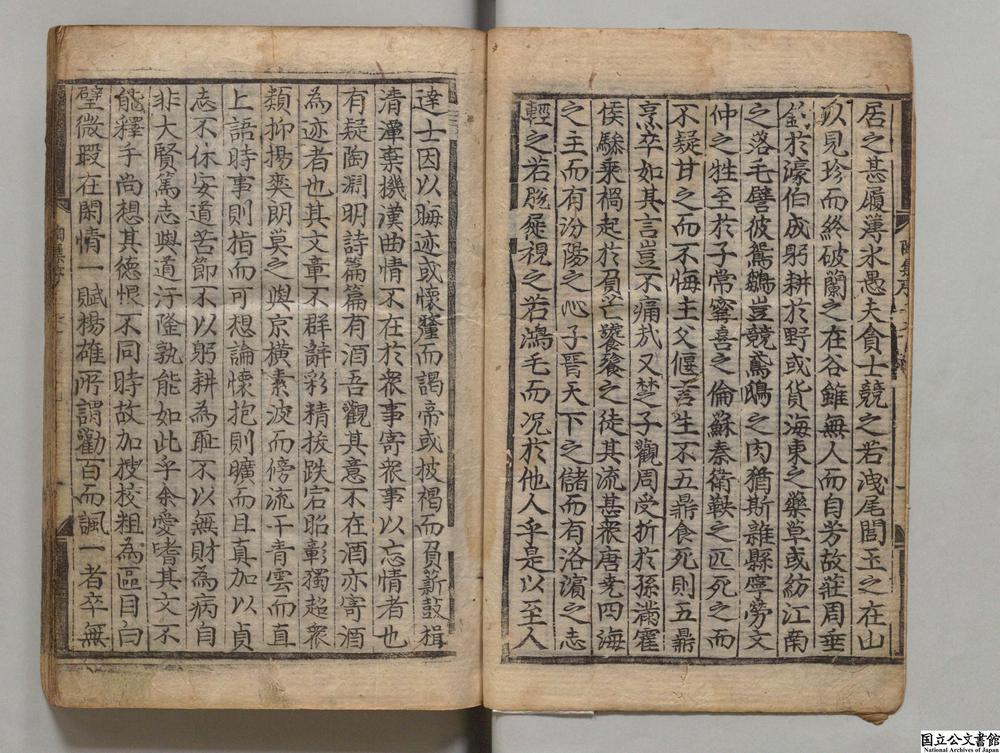 居之甚履薄氷愚夫貪士競之若洩尾閭玉之在山
以見珍而終破蘭之在谷雖無人而自芳故莊周垂
釣於濠伯成躬耕於野或貨海東之藥草或紡江南
之落毛譬彼鴛鶵豈競鳶鴟之肉猶斯雜縣寧勞文
仲之牲至於子常寗喜之倫蘇秦衛鞅之匹死之而
不疑甘之而不悔主父偃言生不五鼎食死則五鼎
烹卒如其言豈不痛㢤又楚子觀周受折於孫滿霍
侯驂乗禍起於負芒饕餮之徒其流甚衆唐尭四海
之主而有汾陽之心子晋天下之儲而有洛濱之志
輕之若脱屣視之若鴻毛而况於他人乎是以至人
達士因以晦迹或懷釐而謁帝或披褐而負薪鼓楫
清潭棄機漢曲情不在於衆事寄衆事以忘情者也
有疑陶淵明詩篇篇有酒吾觀其意不在酒亦寄酒
為迹者也其文章不群辭彩精拔跌宕昭彰獨超衆
類抑揚爽朗莫之與京横素波而傍流干青雲而直
上語時事則指而可想論懷抱則曠而且真加以貞
志不休安道苦節不以躬耕為耻不以無財為病自
非大賢篤志與道汙隆孰能如此乎余愛嗜其文不
能釋手尚想其德恨不同時故加搜校粗為區目白
璧微瑕在閑情一賦楊雄所謂勸百而諷一者卒無
国立公文書館
National Archives of Japan